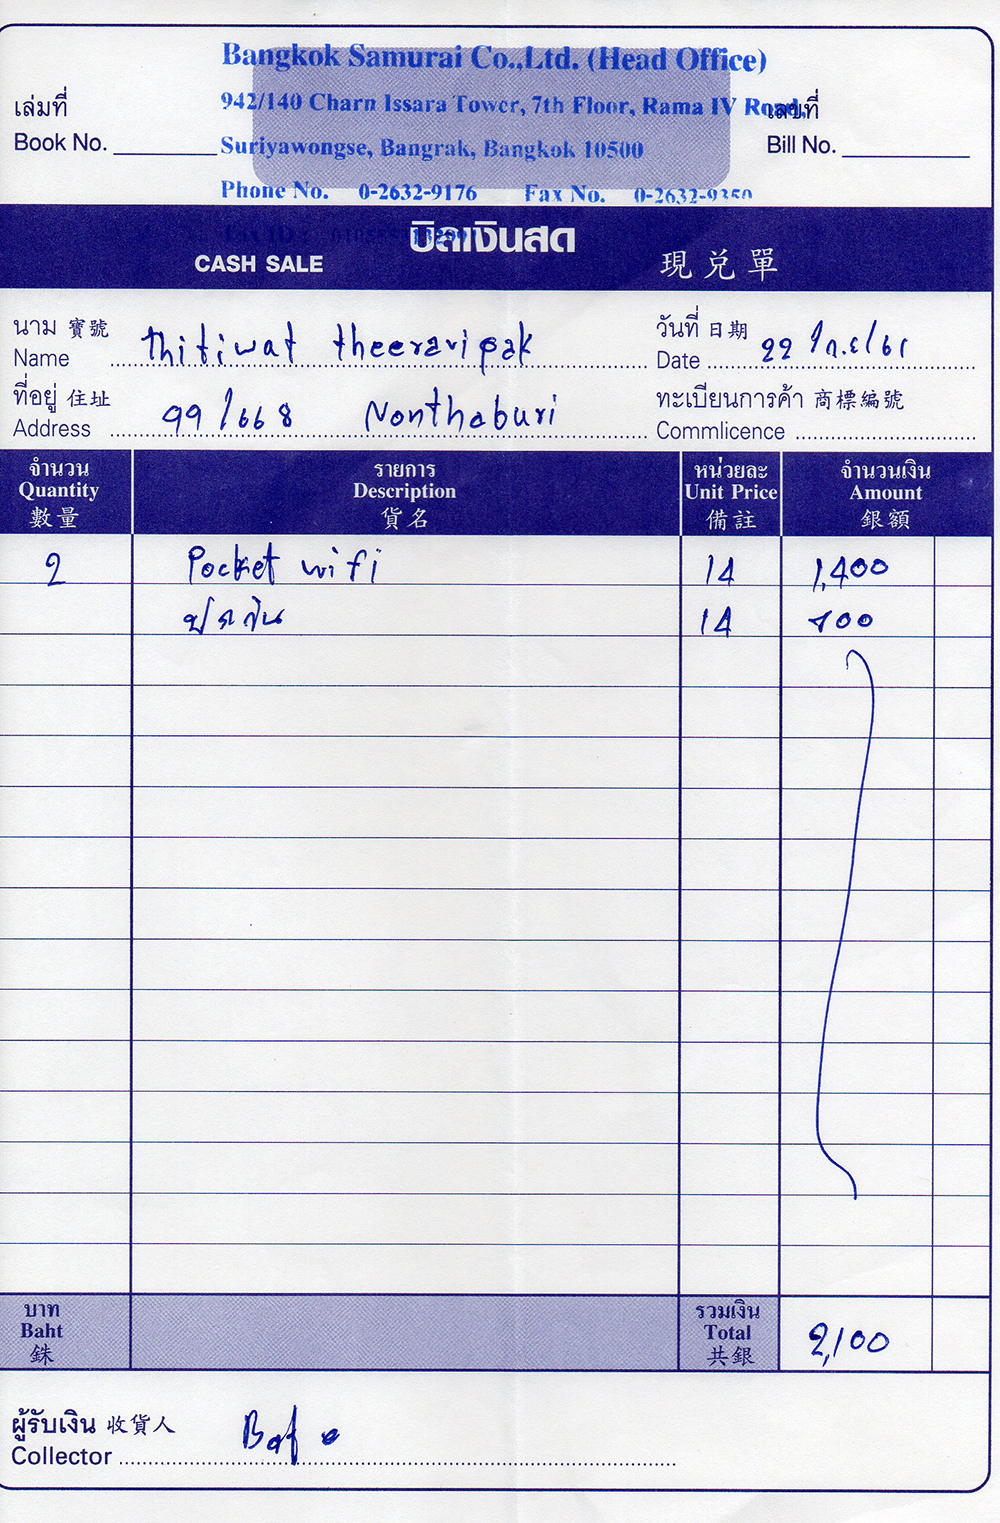 Bangkok Samurai Co.,Ltd. (Head Office)
942/140 Charn Issara Tower, 7th Floor, Rama IV Road,
Suriyawongse, Bangrak, Bangkok 10500
Phone No. 0-2632-9176 Fax No. 0-2632-9350
เล่มที่
Book No.
เลขที่
Bill No.
บิลเงินสด
CASH SALE 現兌單
นาม 寶號
Name Thitiwat theeraripak
วันที่ 日期
Date 22 / ก.ย / 61
ที่อยู่ 住址
Address 99/668 Nonthaburi
ทะเบียนการค้า 商標編號
Commlicence
จำนวน รายการ หน่วยละ จำนวนเงิน
Quantity Description Unit Price Amount
數量 貨名 備註 銀額
2 Pocket wifi 14 1,400
14
บาท รวมเงิน
Baht Total 2,100
銖 共銀
ผู้รับเงิน 收貨人
Collector